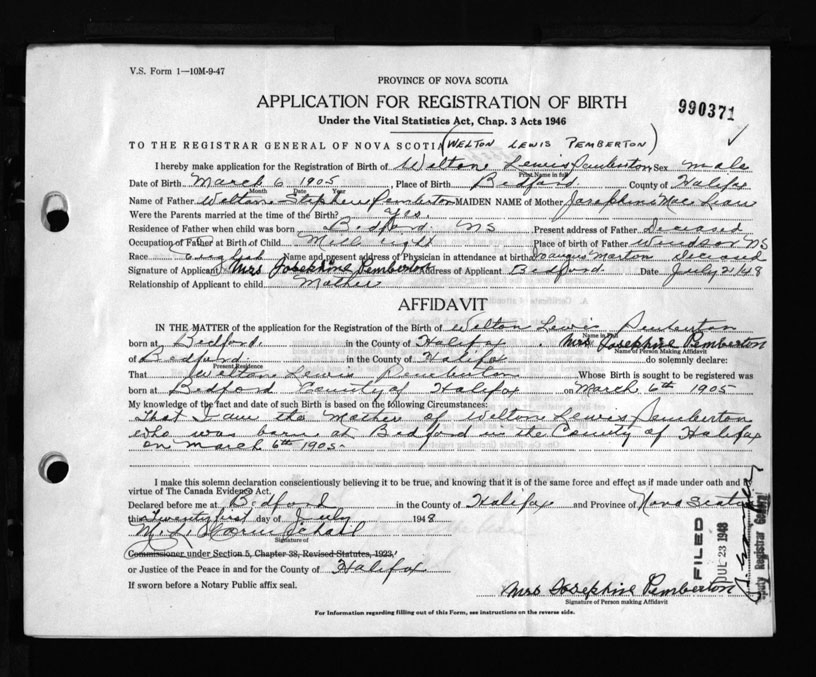 V.S. Form 1—10M-9-47
PROVINCE OF NOVA SCOTIA
990371
APPLICATION FOR REGISTRATION OF BIRTH
Under the Vital Statistics Act, Chap. 3 Acts 1946
TO THE REGISTRAR GENERAL OF NOVA SCOTIA (WELTON LEWIS PEMBERTON)
I hereby make application for the Registration of Birth of Welton Lewis Pemberton Sex male
Print Name in full
Date of Birth March 6 1905 Place of Birth Bedford County of Halifax
Month Date Year
Name of Father Welton Stephen Pemberton MAIDEN NAME of Mother Josephine MacLean
Were the Parents married at the time of the Birth? Yes.
Residence of Father when child was born Bedford, NS Present address of Father Deceased
Occupation of Father at Birth of Child Millwright Place of birth of Father Windsor NS
Race English Name and present address of Physician in attendance at birth Angus Morton Deceased
Signature of Applicant Mrs Josephine Pemberton Address of Applicant Bedford. Date July 21/48
Relationship of Applicant to child Mother
AFFIDAVIT
IN THE MATTER of the application for the Registration of the Birth of Welton Lewis Pemberton
Name in Full
born at Bedford. in the County of Halifax. Mrs Josephine Pemberton
Name of Person Making Affidavit
of Bedford. in the County of Halifax do solemnly declare:
Present Residence
That Welton Lewis Pemberton Whose Birth is sought to be registered was
born at Bedford County of Halifax on March 6th 1905
My knowledge of the fact and date of such Birth is based on the following Circumstances:
That I am the Mother of Welton Lewis Pemberton
who was born at Bedford in the County of Halifax
on March 6th 1905.
I make this solemn declaration conscientiously believing it to be true, and knowing that it is of the same force and effect as if made under oath and by
virtue of The Canada Evidence Act.
Declared before me at Bedford in the County of Halifax and Province of Nova Scotia
this Twenty first day of July 1948
Signature of
Commissioner under Section 5, Chapter 38, Revised Statutes, 1923,
or Justice of the Peace in and for the County of Halifax
If sworn before a Notary Public affix seal.
FILED
JUL 23 1948
Deputy Registrar General
Mrs Josephine Pemberton
Signature of Person making Affidavit
For Information regarding filling out of this Form, see instructions on the reverse side.